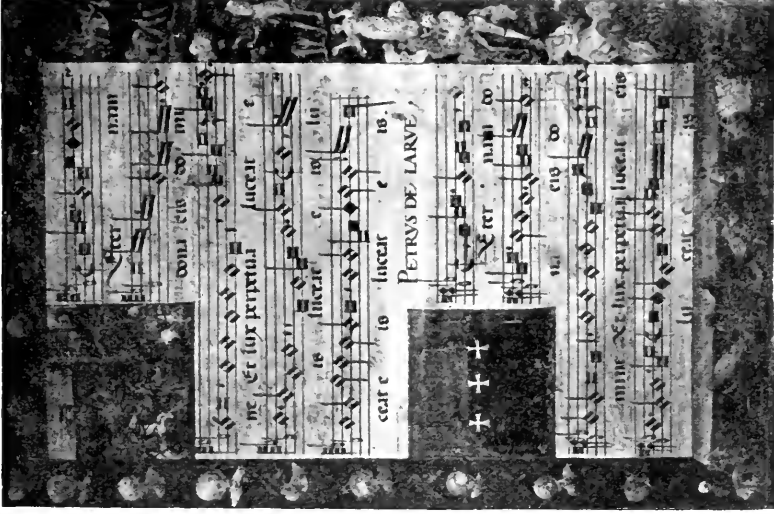 Eter nam
dona eis do mi
ne Et lux perpetua luceat e
is luceat e is lu
ceat e is luceat e is.
PETRVS DE LARVE
Eter nam do
na eis do
mine Et lux perpetua luceat eis
lu ceat e is